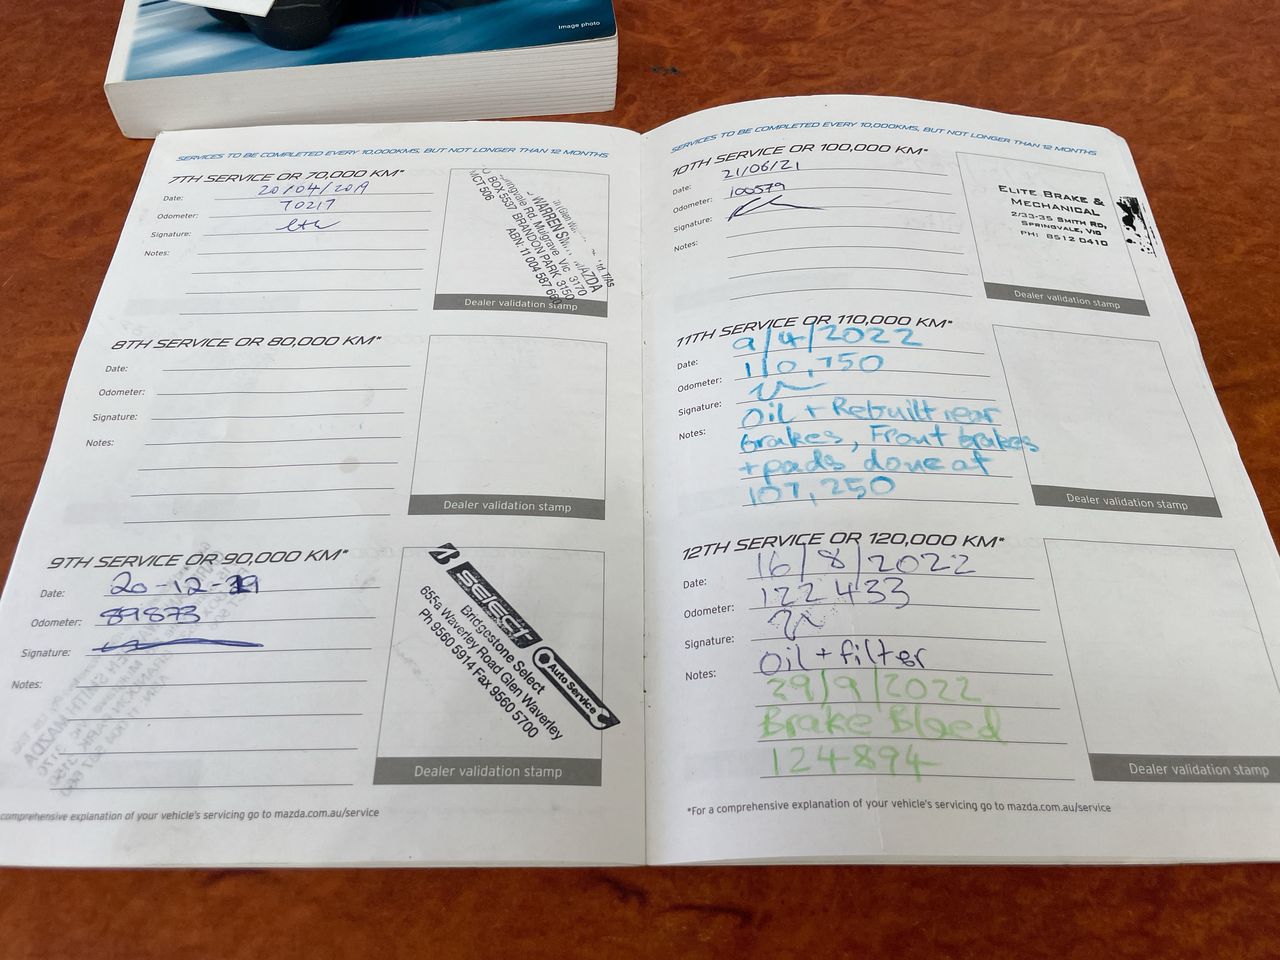 Image photo
SERVICES TO BE COMPLETED EVERY 10,000KMS, BUT NOT LONGER THAN 12 MONTHS
7TH SERVICE OR 70,000 KM*
Date: 20/04/2019
Odometer: 70217
Signature:
Notes:
WARREN
MAZDA
Rd, Mulgrave Vic 3170
BOX 5537 BRANDON PARK 3150
ABN: 11 004 587
MCT 506
Dealer validation stamp
8TH SERVICE OR 80,000 KM*
Date:
Odometer:
Signature:
Notes:
Dealer validation stamp
9TH SERVICE OR 90,000 KM*
Date: 20-12-19
Odometer: 89873
Signature:
Notes:
SELECT
Auto Service
Bridgestone Select
655a Waverley Road Glen Waverley
Ph 9560 5914 Fax 9560 5700
Dealer validation stamp
comprehensive explanation of your vehicle's servicing go to mazda.com.au/service
SERVICES TO BE COMPLETED EVERY 10,000KMS, BUT NOT LONGER THAN 12 MONTHS
10TH SERVICE OR 100,000 KM*
Date: 21/06/21
Odometer: 100579
Signature:
Notes:
ELITE BRAKE &
MECHANICAL
2/33-35 SMITH RD,
SPRINGVALE, VIC
PH: 8512 0410
Dealer validation stamp
11TH SERVICE OR 110,000 KM*
Date: 9/4/2022
Odometer: 110,750
Signature:
Notes: Oil + Rebuilt rear
brakes, Front brakes
+ pads done at
107,250
Dealer validation stamp
12TH SERVICE OR 120,000 KM*
Date: 16/8/2022
Odometer: 122433
Signature:
Notes: Oil + filter
29/9/2022
Brake Bleed
124894
Dealer validation stamp
*For a comprehensive explanation of your vehicle's servicing go to mazda.com.au/service